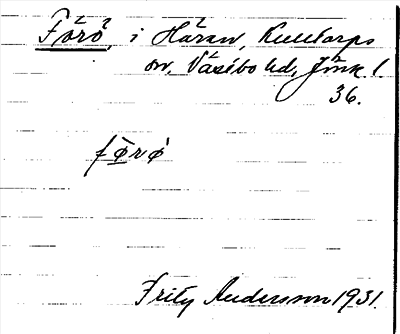 Förö, i Häran, Kulltorps
sn, Västbo hd, Jönk. l.
36.
førø
Fritz Andersson 1931.